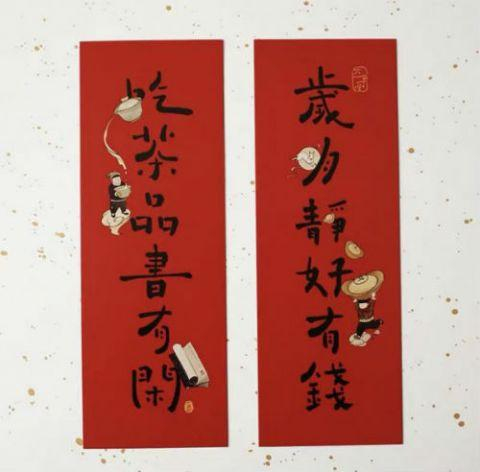 歲月靜好有錢
吃茶品書有閑